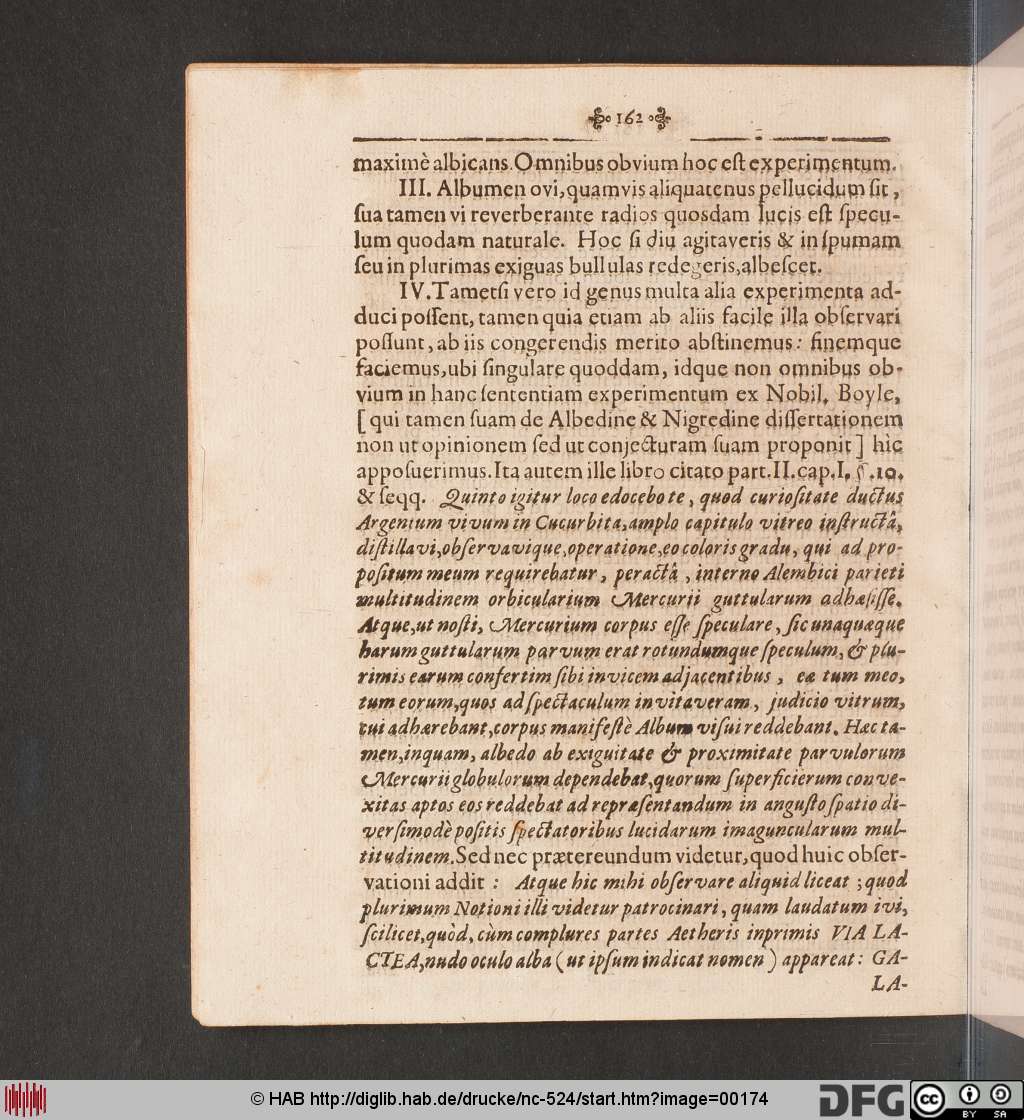 162
maximè albicans. Omnibus obvium hoc eſt experimentum.
III. Albumen ovi, quamvis aliquatenus pellucidum ſit,
ſua tamen vi reverberante radios quosdam lucis eſt ſpecu-
lum quodam naturale. Hoc ſi diu agitaveris & in ſpumam
ſeu in plurimas exiguas bullulas redegeris, albeſcet.
IV. Tametſi vero id genus multa alia experimenta ad-
duci poſſent, tamen quia etiam ab aliis facile illa obſervari
poſſunt, ab iis congerendis merito abſtinemus: finemque
faciemus, ubi ſingulare quoddam, idque non omnibus ob-
vium in hanc ſententiam experimentum ex Nobil. Boyle,
[qui tamen ſuam de Albedine & Nigredine diſſertationem
non ut opinionem ſed ut conjecturam ſuam proponit] hìc
appoſuerimus. Ita autem ille libro citato part. II. cap. I. §. 10.
& ſeqq. Quinto igitur loco edocebo te, quod curioſitate ductus
Argentum vivum in Cucurbita, amplo capitulo vitreo inſtructâ,
diſtillavi, obſervavique, operatione, eo coloris gradu, qui ad pro-
poſitum meum requirebatur, peractâ, interno Alembici parieti
multitudinem orbicularium Mercurii guttularum adhæſiſſe.
Atque, ut noſti, Mercurium corpus eſſe ſpeculare, ſic unaquæque
harum guttularum parvum erat rotundumque ſpeculum, & plu-
rimis earum confertim ſibi invicem adjacentibus, ea tum meo,
tum eorum, quos ad ſpectaculum invitaveram, judicio vitrum,
cui adhærebant, corpus manifeſtè Album viſui reddebant. Hæc ta-
men, inquam, albedo ab exiguitate & proximitate parvulorum
Mercurii globulorum dependebat, quorum ſuperficierum conve-
xitas aptos eos reddebat ad repræſentandum in anguſto ſpatio di-
verſimodè poſitis ſpectatoribus lucidarum imaguncularum mul-
titudinem. Sed nec prætereundum videtur, quod huic obſer-
vationi addit: Atque hic mihi obſervare aliquid liceat; quod
plurimum Notioni illi videtur patrocinari, quam laudatum ivi,
ſcilicet, quòd, cùm complures partes Aetheris inprimis VIA LA-
CTEA, nudo oculo alba (ut ipſum indicat nomen) appareat: GA-
LA-
© HAB http://diglib.hab.de/drucke/nc-524/start.htm?image=00174
DFG
cc BY SA